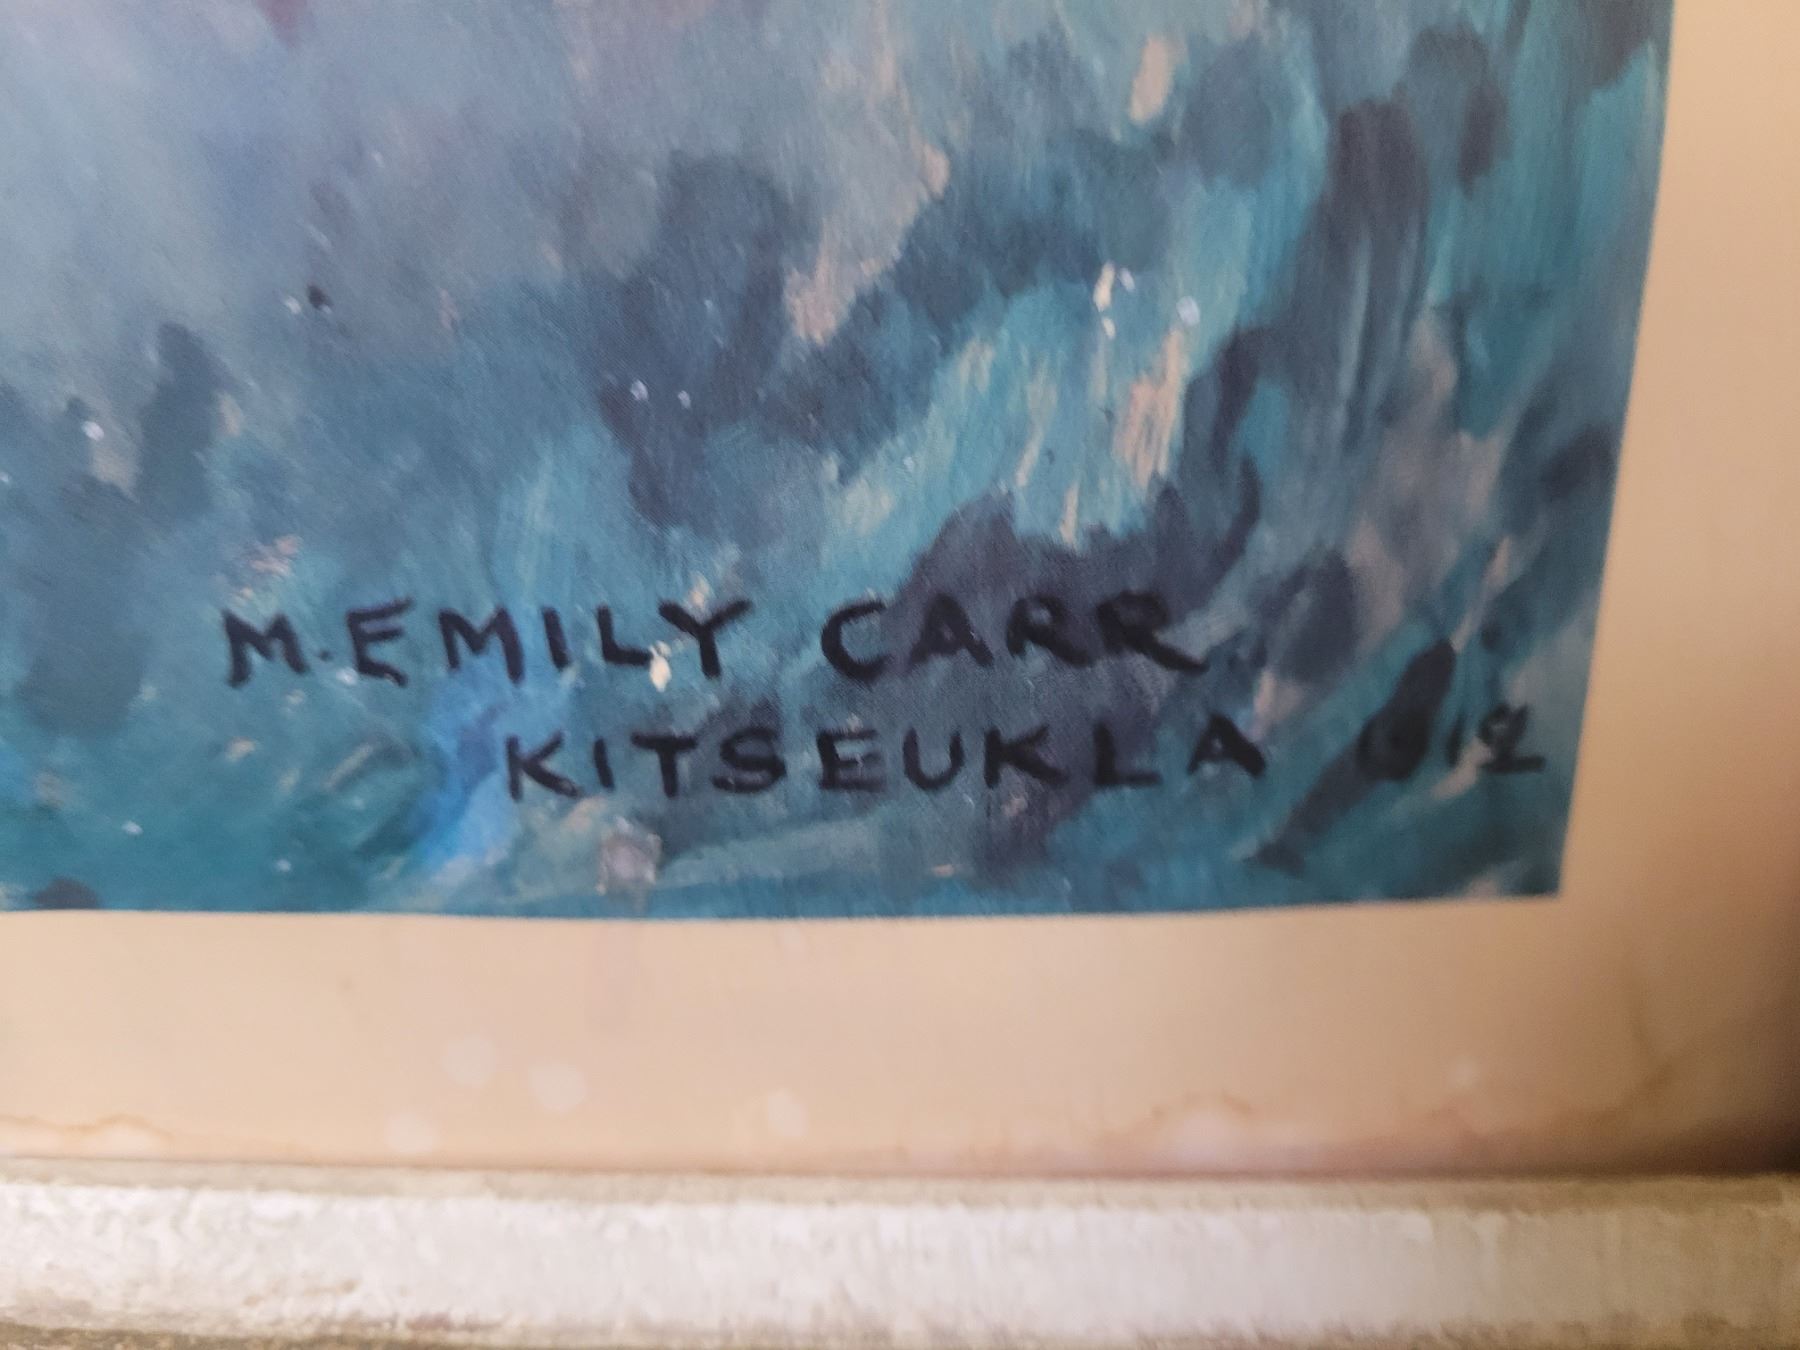 M. EMILY CARR
KITSEUKLA 1912